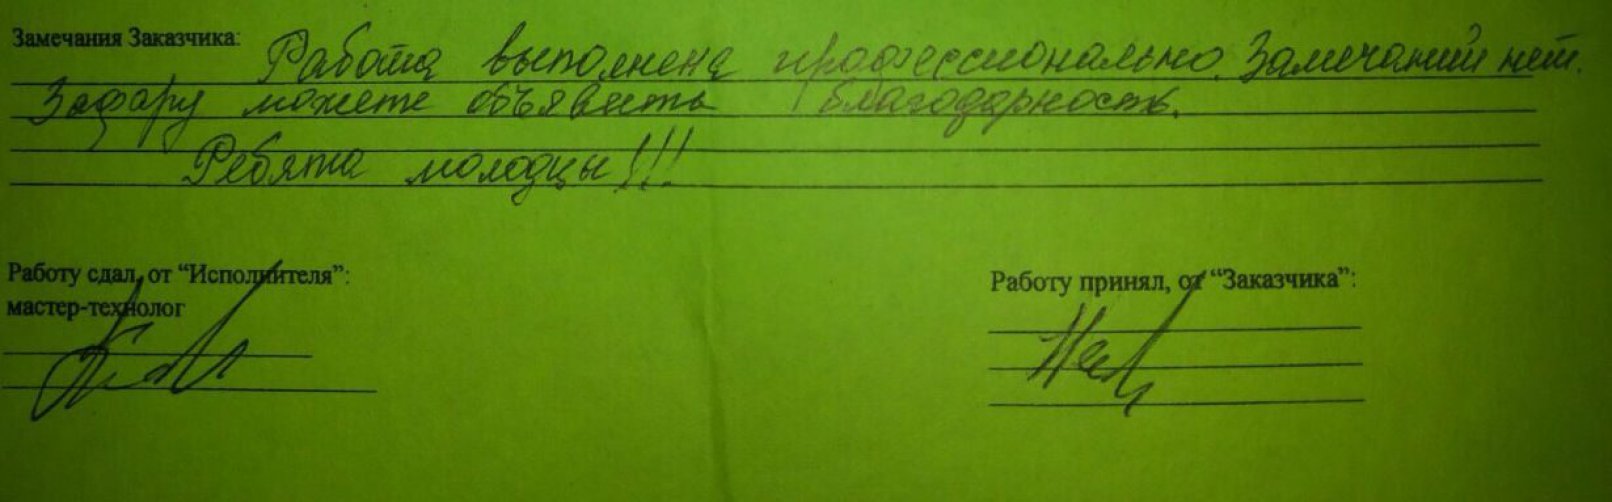 Замечания Заказчика: Работа выполнена профессионально. Замечаний нет.
Зафару можете объявить благодарность.
Ребята молодцы!!!
Работу сдал, от “Исполнителя”:
мастер-технолог
Работу принял, от “Заказчика”: